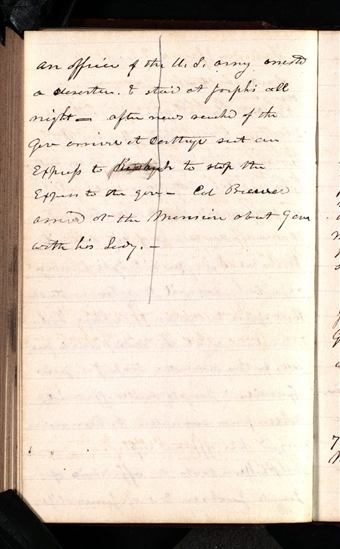 an officer of the U.S. army arrested
a deserter. & staid at josephs all
night — after news reachd of the
Gov arrival at Carthage sent an
Express to to stop the
Express to the gov — Col Brewer
arrived at the Mansion about 9 am
with his Lady. —